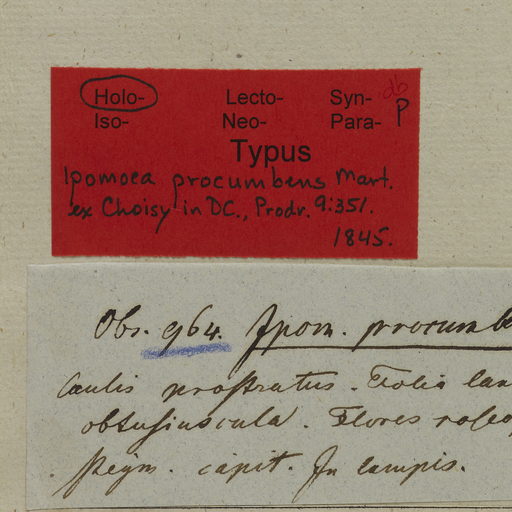 Holo- Lecto- Syn- db
Iso- Neo- Para- P
Typus
Ipomoea procumbens Mart.
ex Choisy in DC., Prodr. 9:351.
1845.
Obs. 964. Ipom. procumbe
Caulis prostratus. Folia lan
obtusiuscula. Flores roseo
Stigm. capit. In campis.